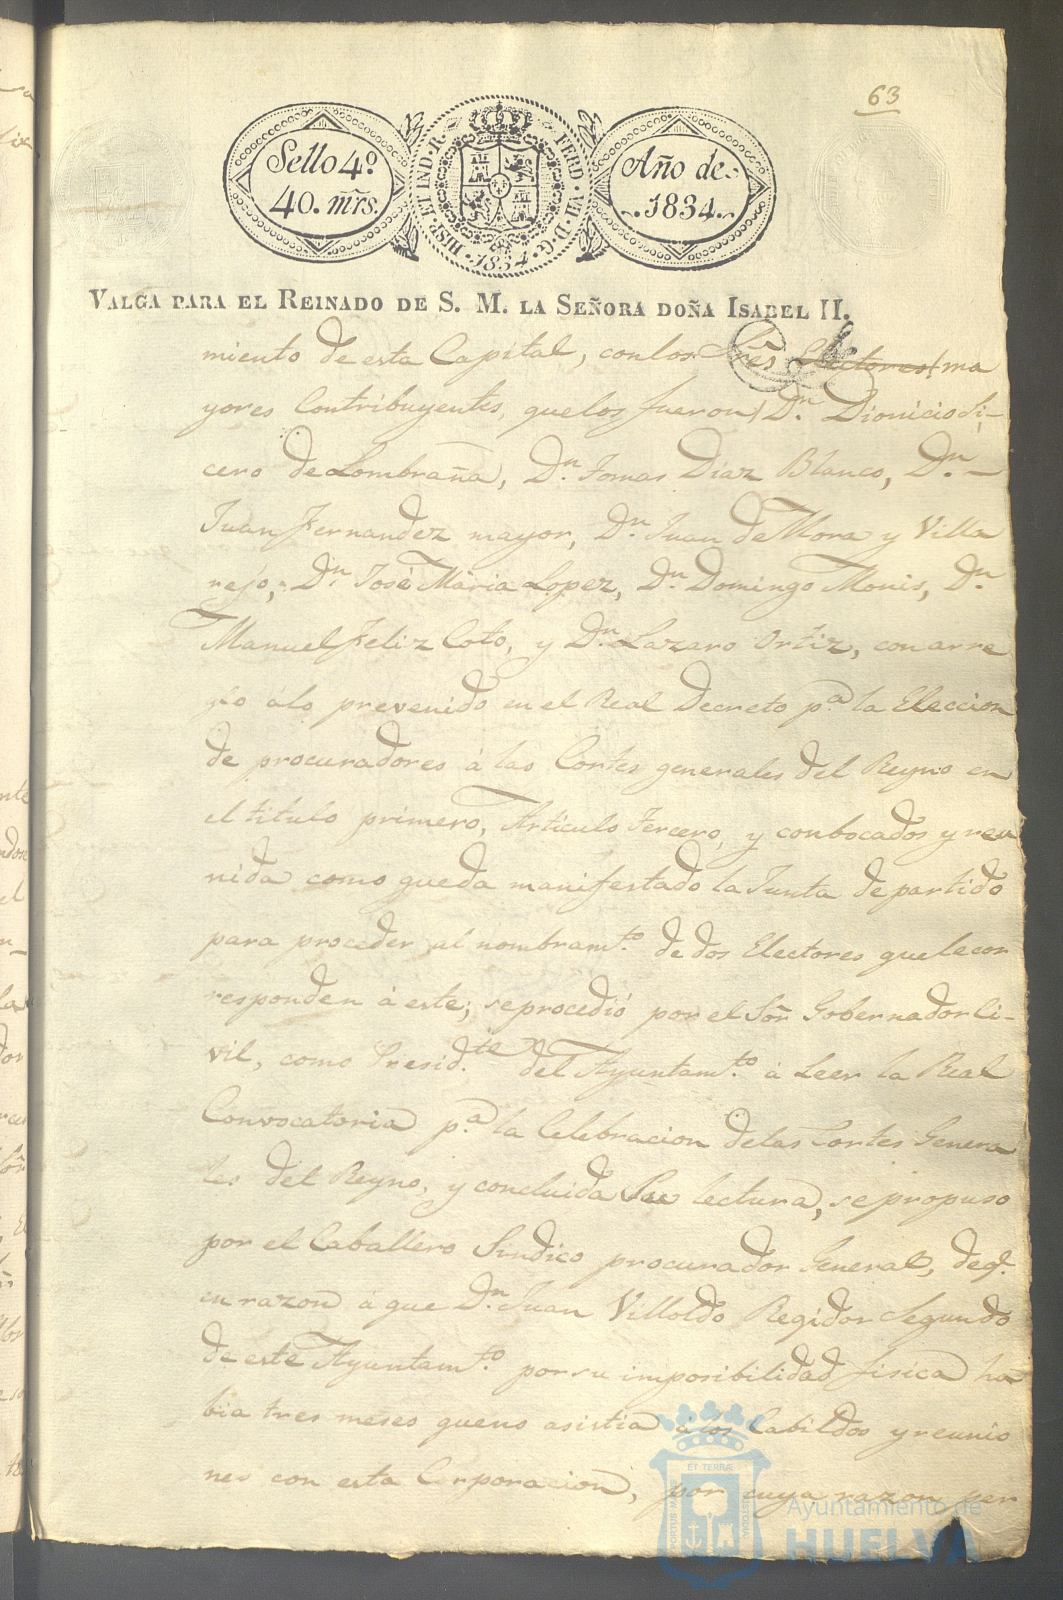 63
Sello 4º
40. mrs.
HISP. ET IND. R. FERD. VII. D. G. 1834.
Año de
1834.
VALGA PARA EL REINADO DE S. M. LA SEÑORA DOÑA ISABEL II.
miento de esta Capital, con los Sres Electores/ ma
yores Contribuyentes, que los fueron/ Dn. Dionicio Si-
cero de Lombraña, Dn. Tomas Diaz Blanco, Dn.
Juan Fernandez mayor, Dn. Juan de Mora y Villa
rejo, Dn. José Maria Lopez, Dn. Domingo Monis, Dn.
Manuel Feliz Coto, y Dn. Lazaro Ortiz, con arre
glo álo prevenido en el Real Decreto pa. la Eleccion
de procuradores á las Cortes generales del Reyno en
el titulo primero, Articulo tercero, y conbocados y reu
nida como queda manifestado la Junta de partido
para proceder al nombramto. de dos Electores que le cor
responden á este; se procedió por el Sor. Gobernador Ci-
vil, como Presidte. del Ayuntamto. á Leer la Real
Convocatoria pa. la Celebracion de las Cortes Genera
les del Reyno, y concluida su lectura, se propuso
por el Caballero Sindico procurador General, de q.
en razon á que Dn. Juan Villoldo Regidor Segundo
de este Ayuntamto. por su imposibilidad fisica ha
bia tres meses que no asistia á los Cabildos y reunio
nes con esta Corporacion, por cuya razon per
PORTUS MARIS ET TERRÆ CUSTODIA
Ayuntamiento de
HUELVA